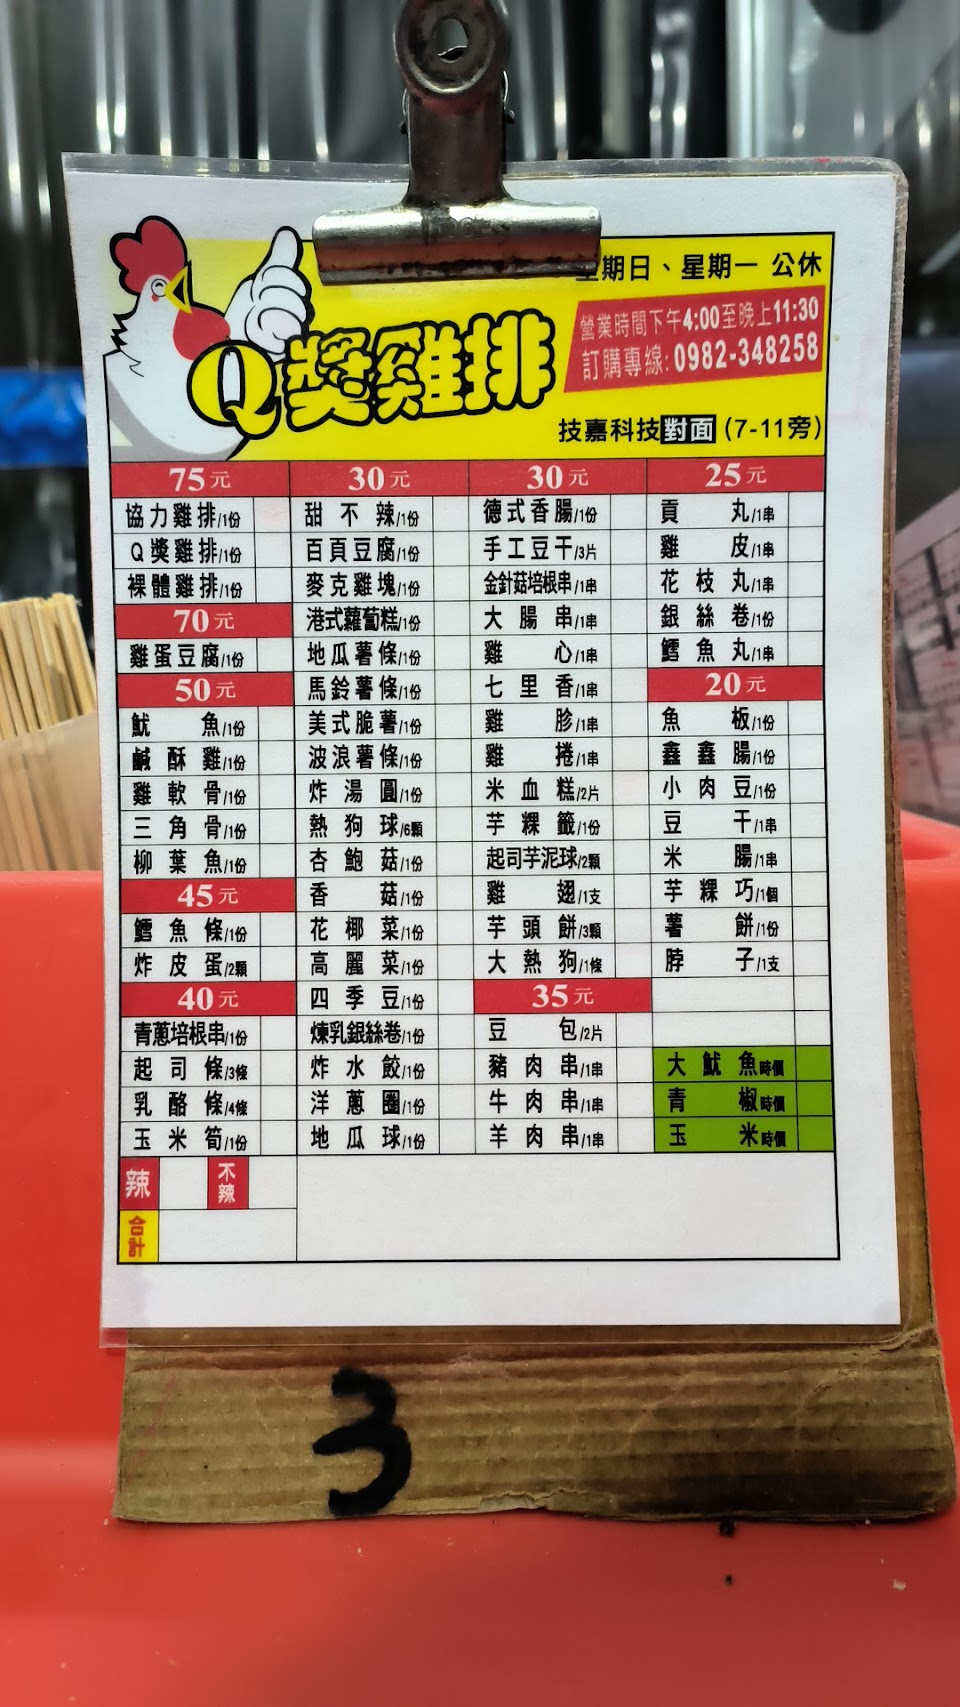 期日、星期一 公休
Q獎雞排
營業時間下午4:00至晚上11:30
訂購專線:0982-348258
技嘉科技對面(7-11旁)
75元
協力雞排/1份
Q獎雞排/1份
裸體雞排/1份
70元
雞蛋豆腐/1份
50元
魷魚/1份
鹹酥雞/1份
雞軟骨/1份
三角骨/1份
柳葉魚/1份
45元
鱈魚條/1份
炸皮蛋/2顆
40元
青蔥培根串/1份
起司條/3條
乳酪條/4條
玉米筍/1份
30元
甜不辣/1份
百頁豆腐/1份
麥克雞塊/1份
港式蘿蔔糕/1份
地瓜薯條/1份
馬鈴薯條/1份
美式脆薯/1份
波浪薯條/1份
炸湯圓/1份
熱狗球/6顆
杏鮑菇/1份
香菇/1份
花椰菜/1份
高麗菜/1份
四季豆/1份
煉乳銀絲卷/1份
炸水餃/1份
洋蔥圈/1份
地瓜球/1份
30元
德式香腸/1份
手工豆干/3片
金針菇培根串/1串
大腸串/1串
雞心/1串
七里香/1串
雞胗/1串
雞捲/1串
米血糕/2片
芋粿籤/1份
起司芋泥球/2顆
雞翅/1支
芋頭餅/3顆
大熱狗/1條
35元
豆包/2片
豬肉串/1串
牛肉串/1串
羊肉串/1串
25元
貢丸/1串
雞皮/1串
花枝丸/1串
銀絲卷/1份
鱈魚丸/1串
20元
魚板/1份
鑫鑫腸/1份
小肉豆/1份
豆干/1串
米腸/1串
芋粿巧/1個
薯餅/1份
脖子/1支
大魷魚時價
青椒時價
玉米時價
辣
不辣
合計
3